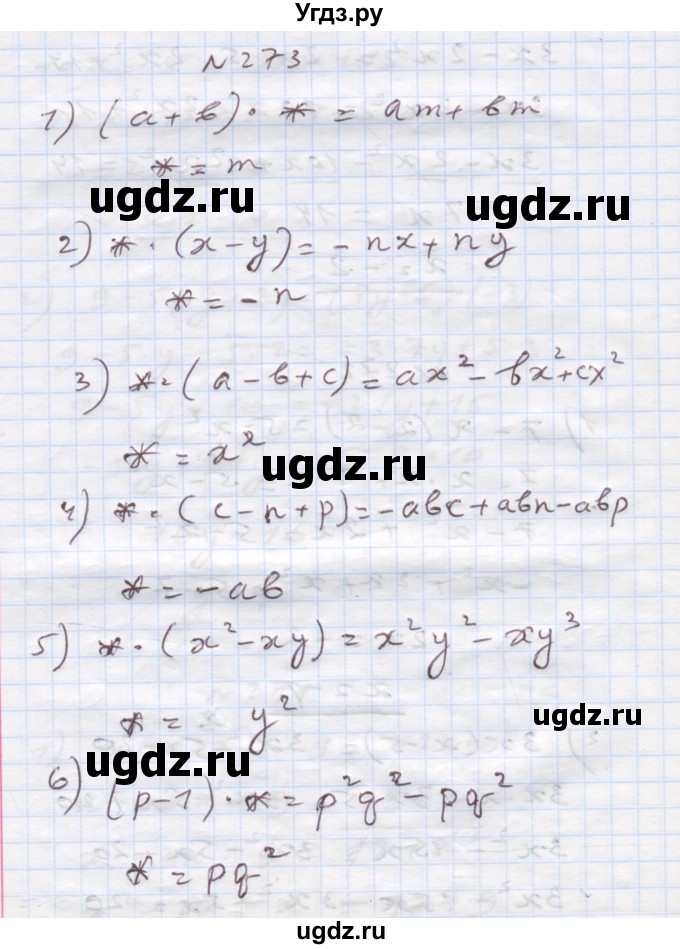 Угдз.ру
№ 273
1) (a+b) · * = am + bm
* = m
ugdz.ru ugdz.ru
2) * · (x-y) = - nx + ny
* = - n
3) * · (a - b + c) = ax² - bx² + cx²
* = x²
ugdz.ru
4) * · (c - n + p) = -abc + abn - abp
* = - ab
5) * · (x² - xy) = x²y² - xy³
* = y²
ugdz.ru
ugdz.ru
6) (p-1) · * = p²q² - pq²
* = pq²
ugdz.ru